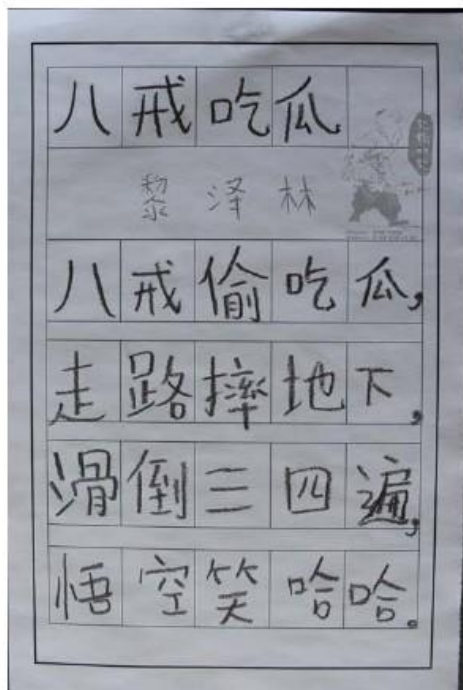 八戒吃瓜
黎泽林
八戒偷吃瓜,
走路摔地下,
滑倒三四遍,
悟空笑哈哈。